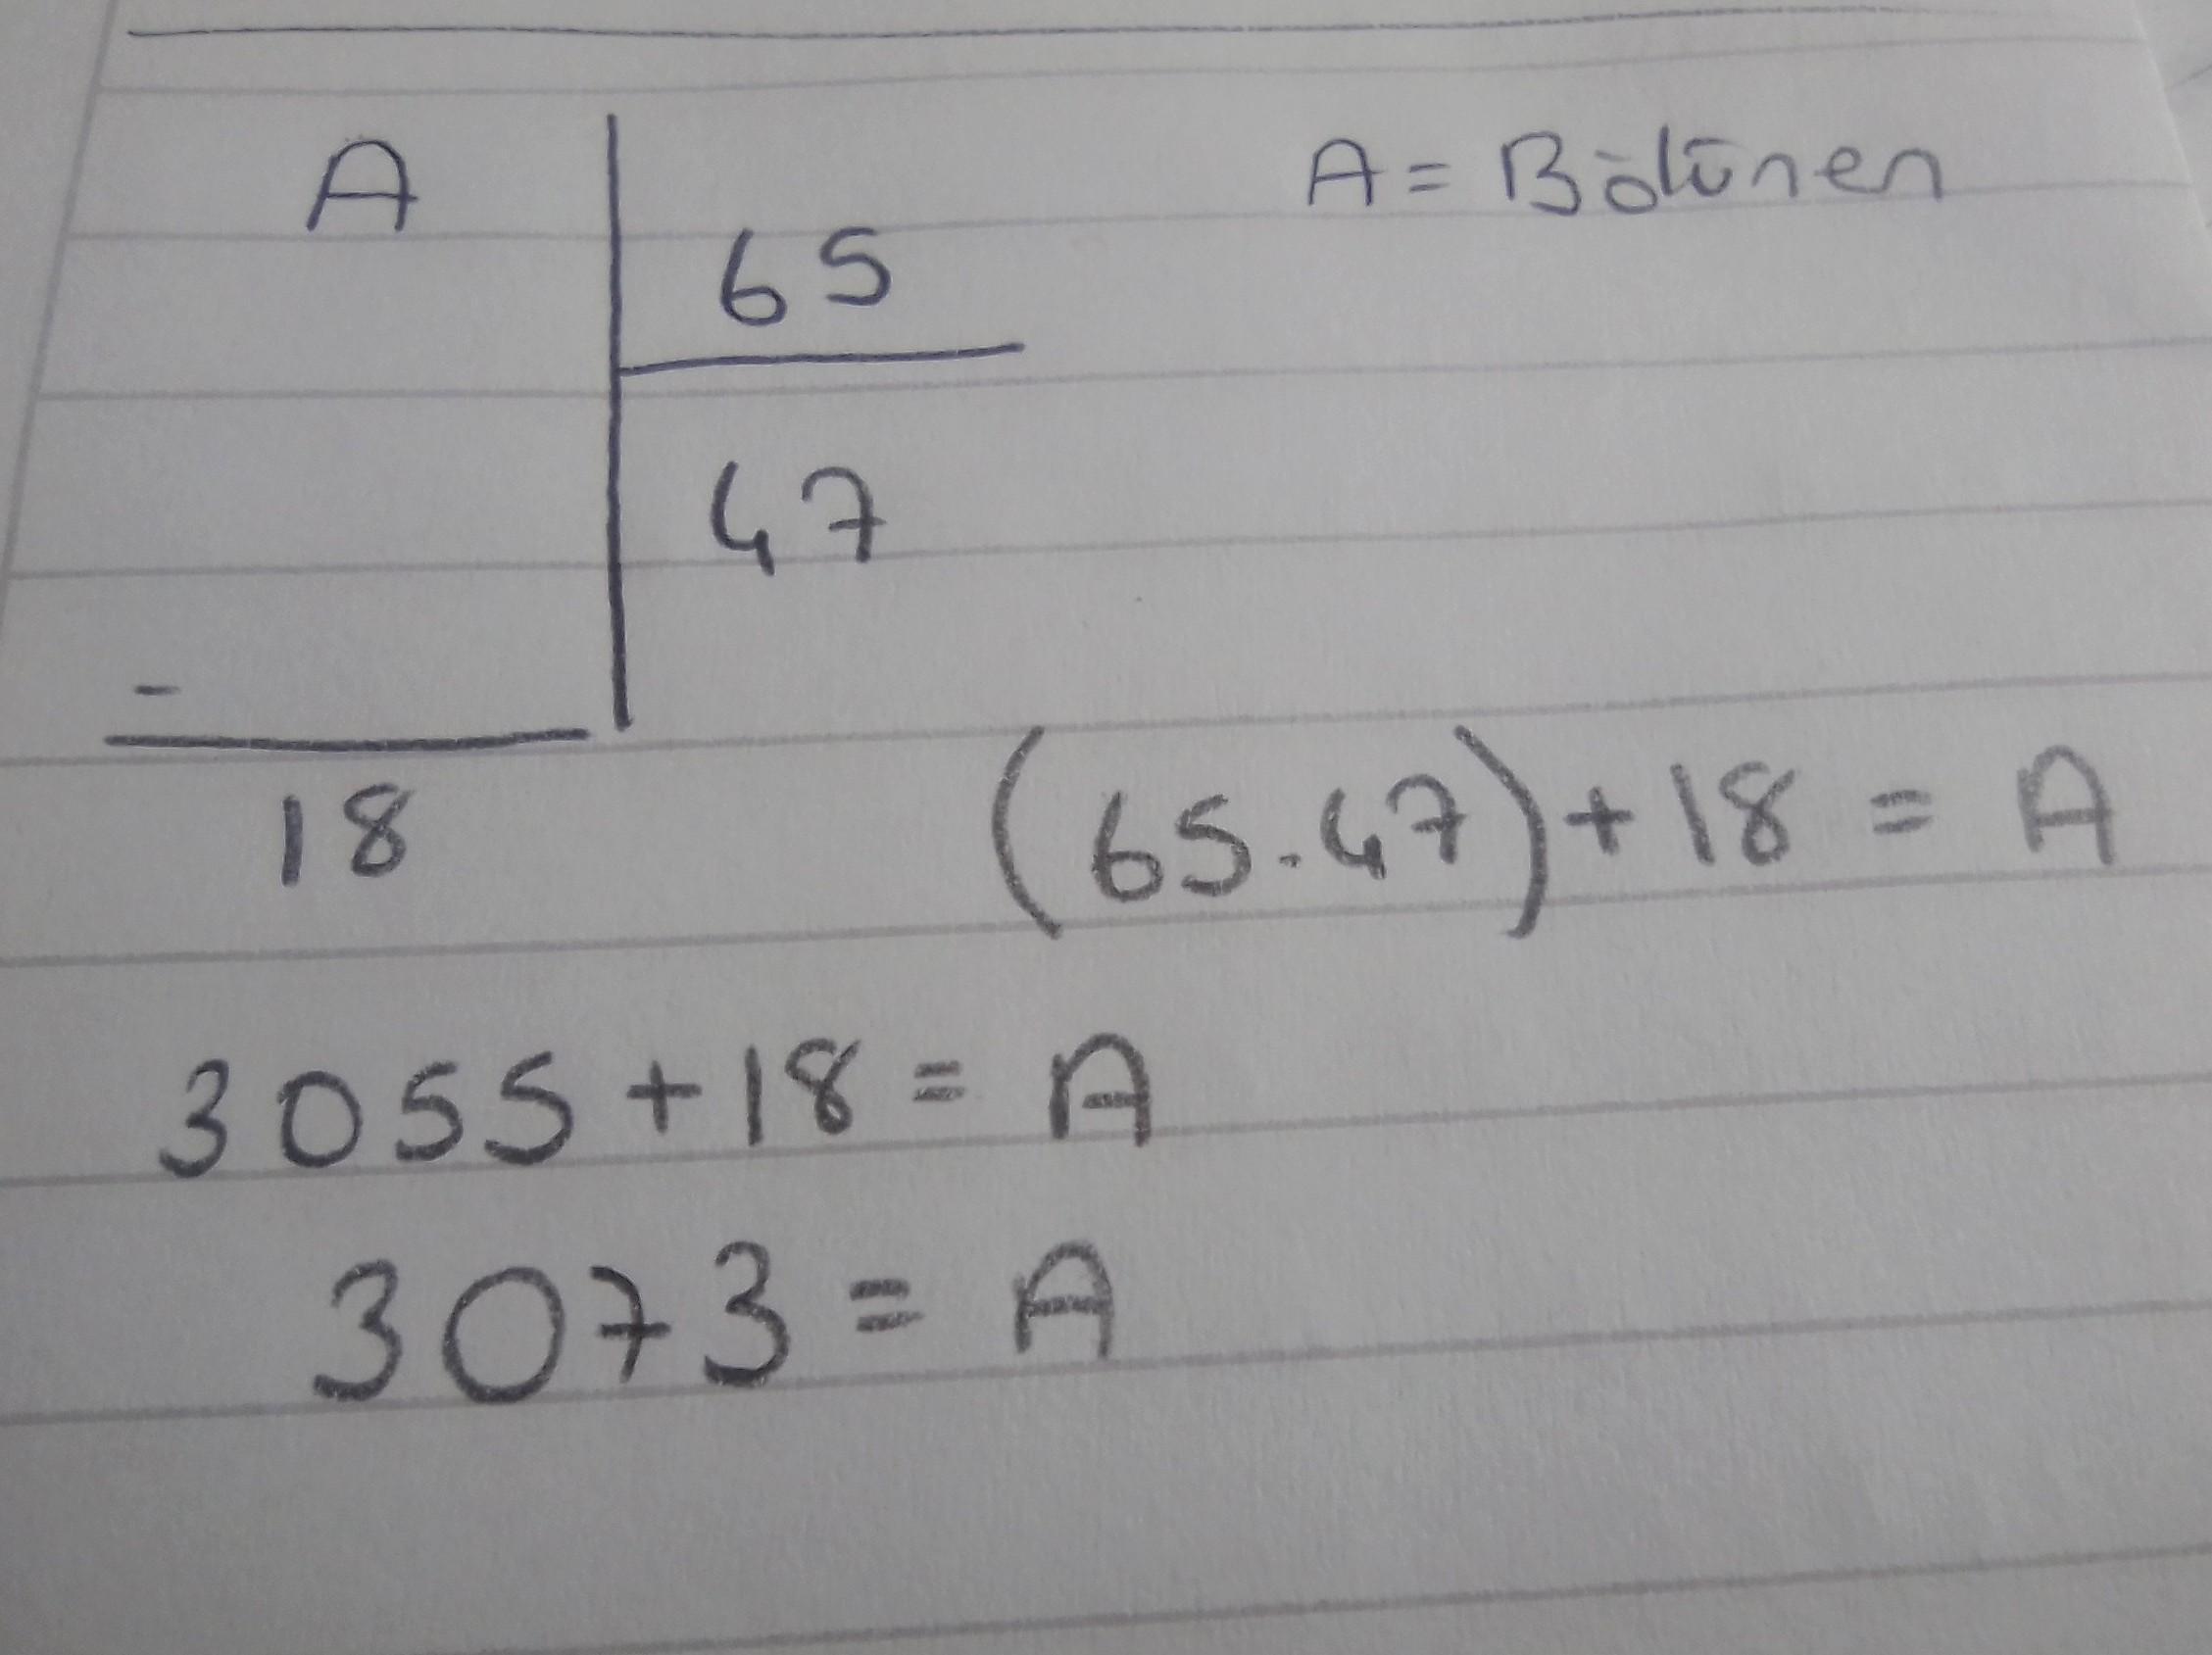 A
A = Bölünen
65
47
-
18
(65.47)+18 = A
3055+18 = A
3073 = A